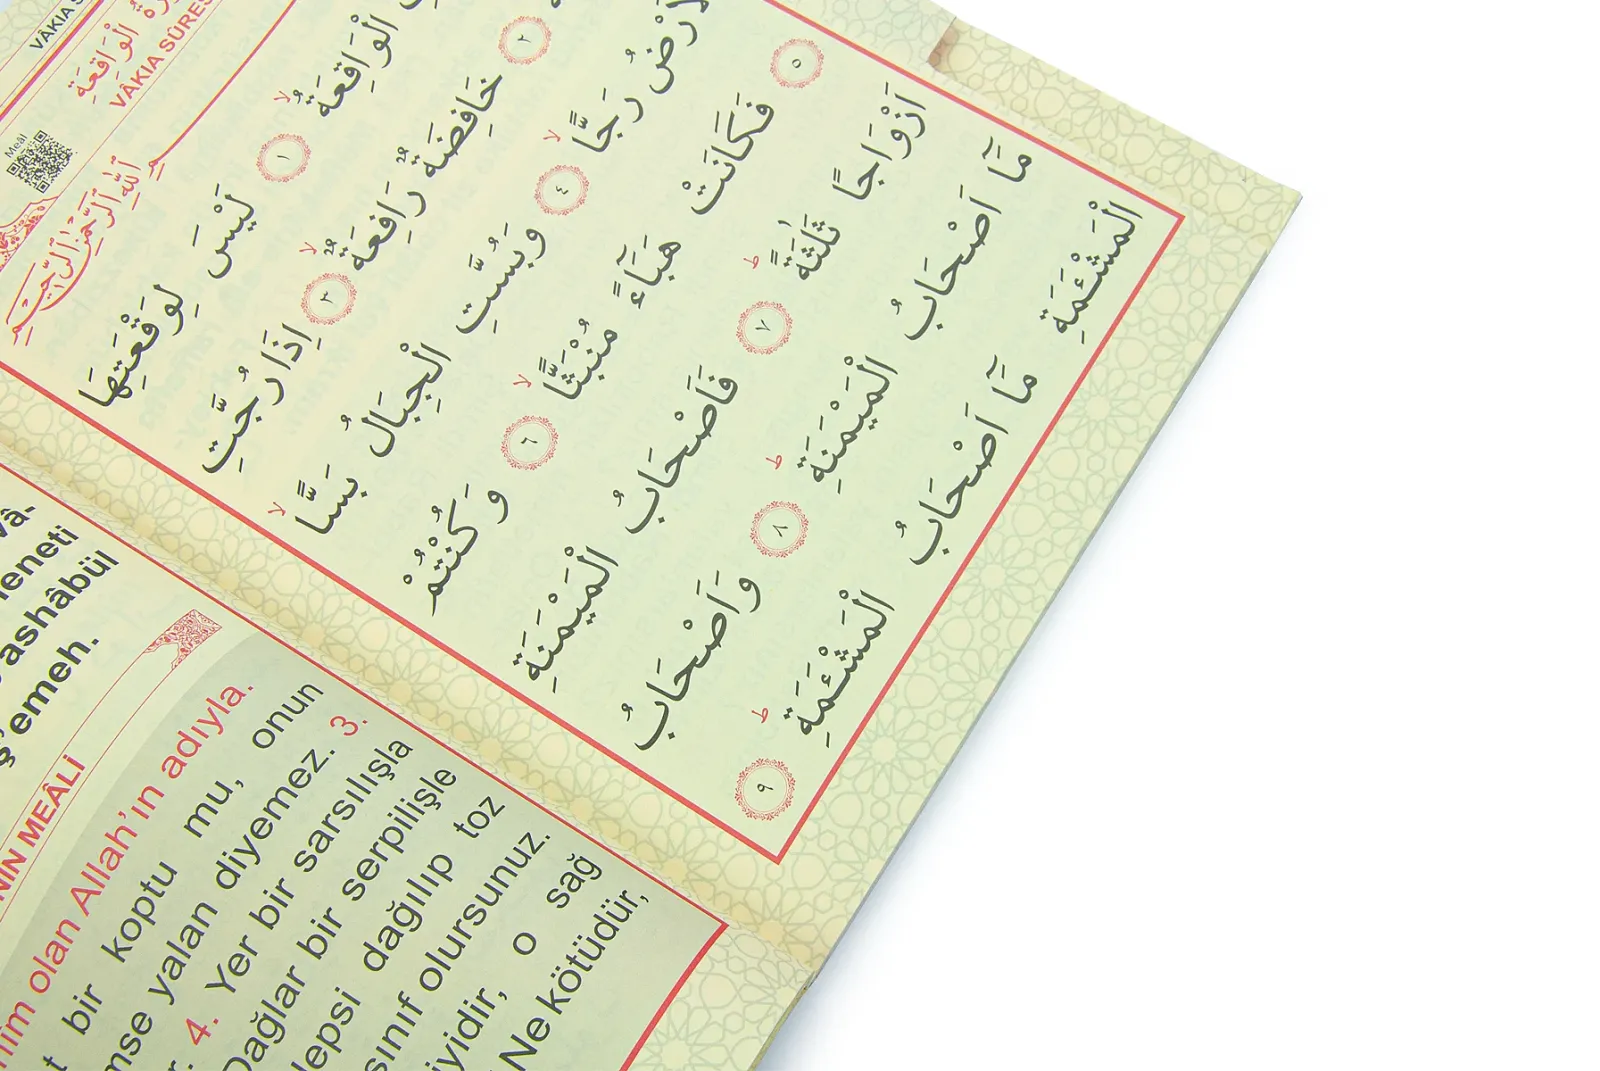 VÂKIA S
رَةُ الْوَاقِعَةِ
VÂKIA SÛRES
Meâl
اللّٰهِ الرَّحْمٰنِ الرَّحِيمِ
الْوَاقِعَةُ ۙ ﴿١﴾ لَيْسَ لِوَقْعَتِهَا
﴿٢﴾ خَافِضَةٌ رَافِعَةٌ ۙ ﴿٣﴾ اِذَا رُجَّتِ
اَرْضُ رَجًّا ۙ ﴿٤﴾ وَبُسَّتِ الْجِبَالُ بَسًّا ۙ
﴿٥﴾ فَكَانَتْ هَبَٓاءً مُنْبَثًّا ۙ ﴿٦﴾ وَكُنْتُمْ
اَزْوَاجًا ثَلٰثَةً ط ﴿٧﴾ فَاَصْحَابُ الْمَيْمَنَةِ
مَٓا اَصْحَابُ الْمَيْمَنَةِ ط ﴿٨﴾ وَاَصْحَابُ
الْمَشْـَٔمَةِ مَٓا اَصْحَابُ الْمَشْـَٔمَةِ ط ﴿٩﴾
vâ-
meneti
ashâbül
ş'emeh.
NİN MEÂLİ
him olan Allah'ın adıyla.
t bir koptu mu, onun
mse yalan diyemez. 3.
r. 4. Yer bir sarsılışla
Dağlar bir serpilişle
hepsi dağılıp toz
sınıf olursunuz.
iyidir, o sağ
Ne kötüdür,